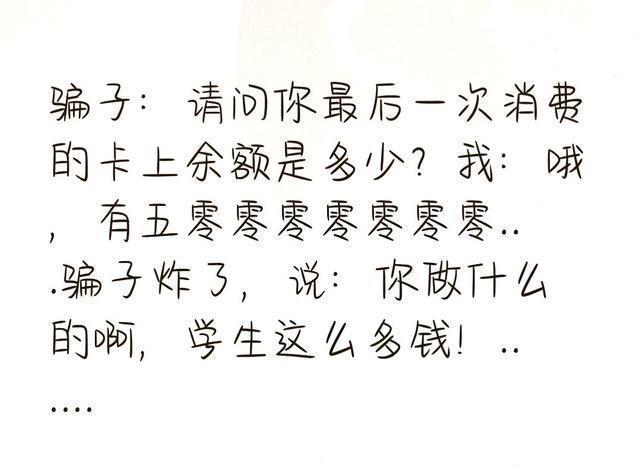 骗子：请问你最后一次消费
的卡上余额是多少？我：哦
，有五零零零零零零零..
.骗子炸了，说：你做什么
的啊，学生这么多钱！..
....